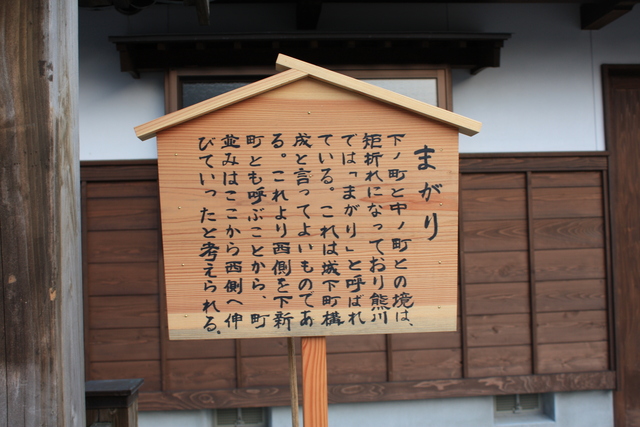 まがり
下ノ町と中ノ町との境は、
矩折れになっており熊川
では「まがり」と呼ばれ
ている。これは城下町構
成と言ってよいものであ
る。これより西側を下新
町とも呼ぶことから、町
並みはここから西側へ伸
びていったと考えられる。